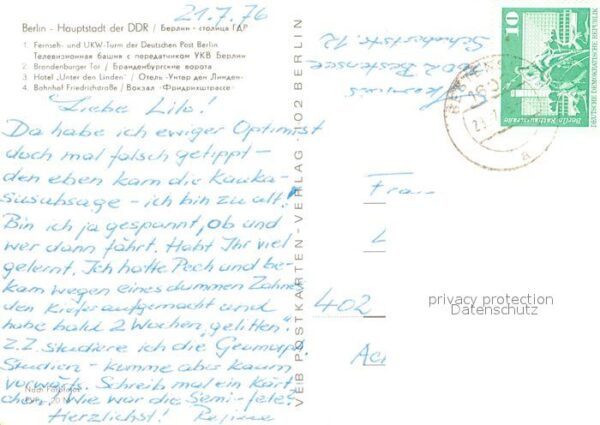 21.7.76
Berlin - Hauptstadt der DDR / Берлин - столица ГДР
1. Fernseh- und UKW-Turm der Deutschen Post Berlin
Телевизионная башня с передатчиком УКВ Берлин
2. Brandenburger Tor / Бранденбургские ворота
3. Hotel „Unter den Linden" / Отель „Унтер ден Линден"
4. Bahnhof Friedrichstraße / Вокзал „Фридрихштрассе"
Liebe Lilo!
Da habe ich ewiger Optimist
doch mal falsch getippt -
den eben kam die Kauka-
susabsage - ich bin zu alt!
Bin ich ja gespannt, ob und
wer dann fährt. Habt Ihr viel
gelernt. Ich hatte Pech und be-
kam wegen eines dummen Zahnes
den Kiefer aufgemacht und
habe bald 2 Wochen „gelitten".
Z.Z. studiere ich die Geomorph.
Studien - komme aber kaum
vorwärts. Schreib mal ein Kärt
chen. Wie war die Semi-fete?
Herzlichst! Regine
VEB POSTKARTEN-VERLAG · 402 BERLIN
Schubertstr. 12
10
DEUTSCHE DEMOKRATISCHE REPUBLIK
Frau
402
privacy protection
Datenschutz